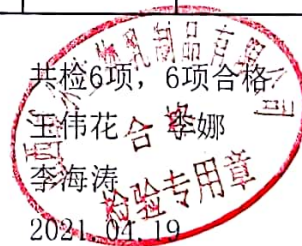 共检6项，6项合格
王伟花 李娜
李海涛
2021.04.19
乳制品有限公司
合格
检验专用章